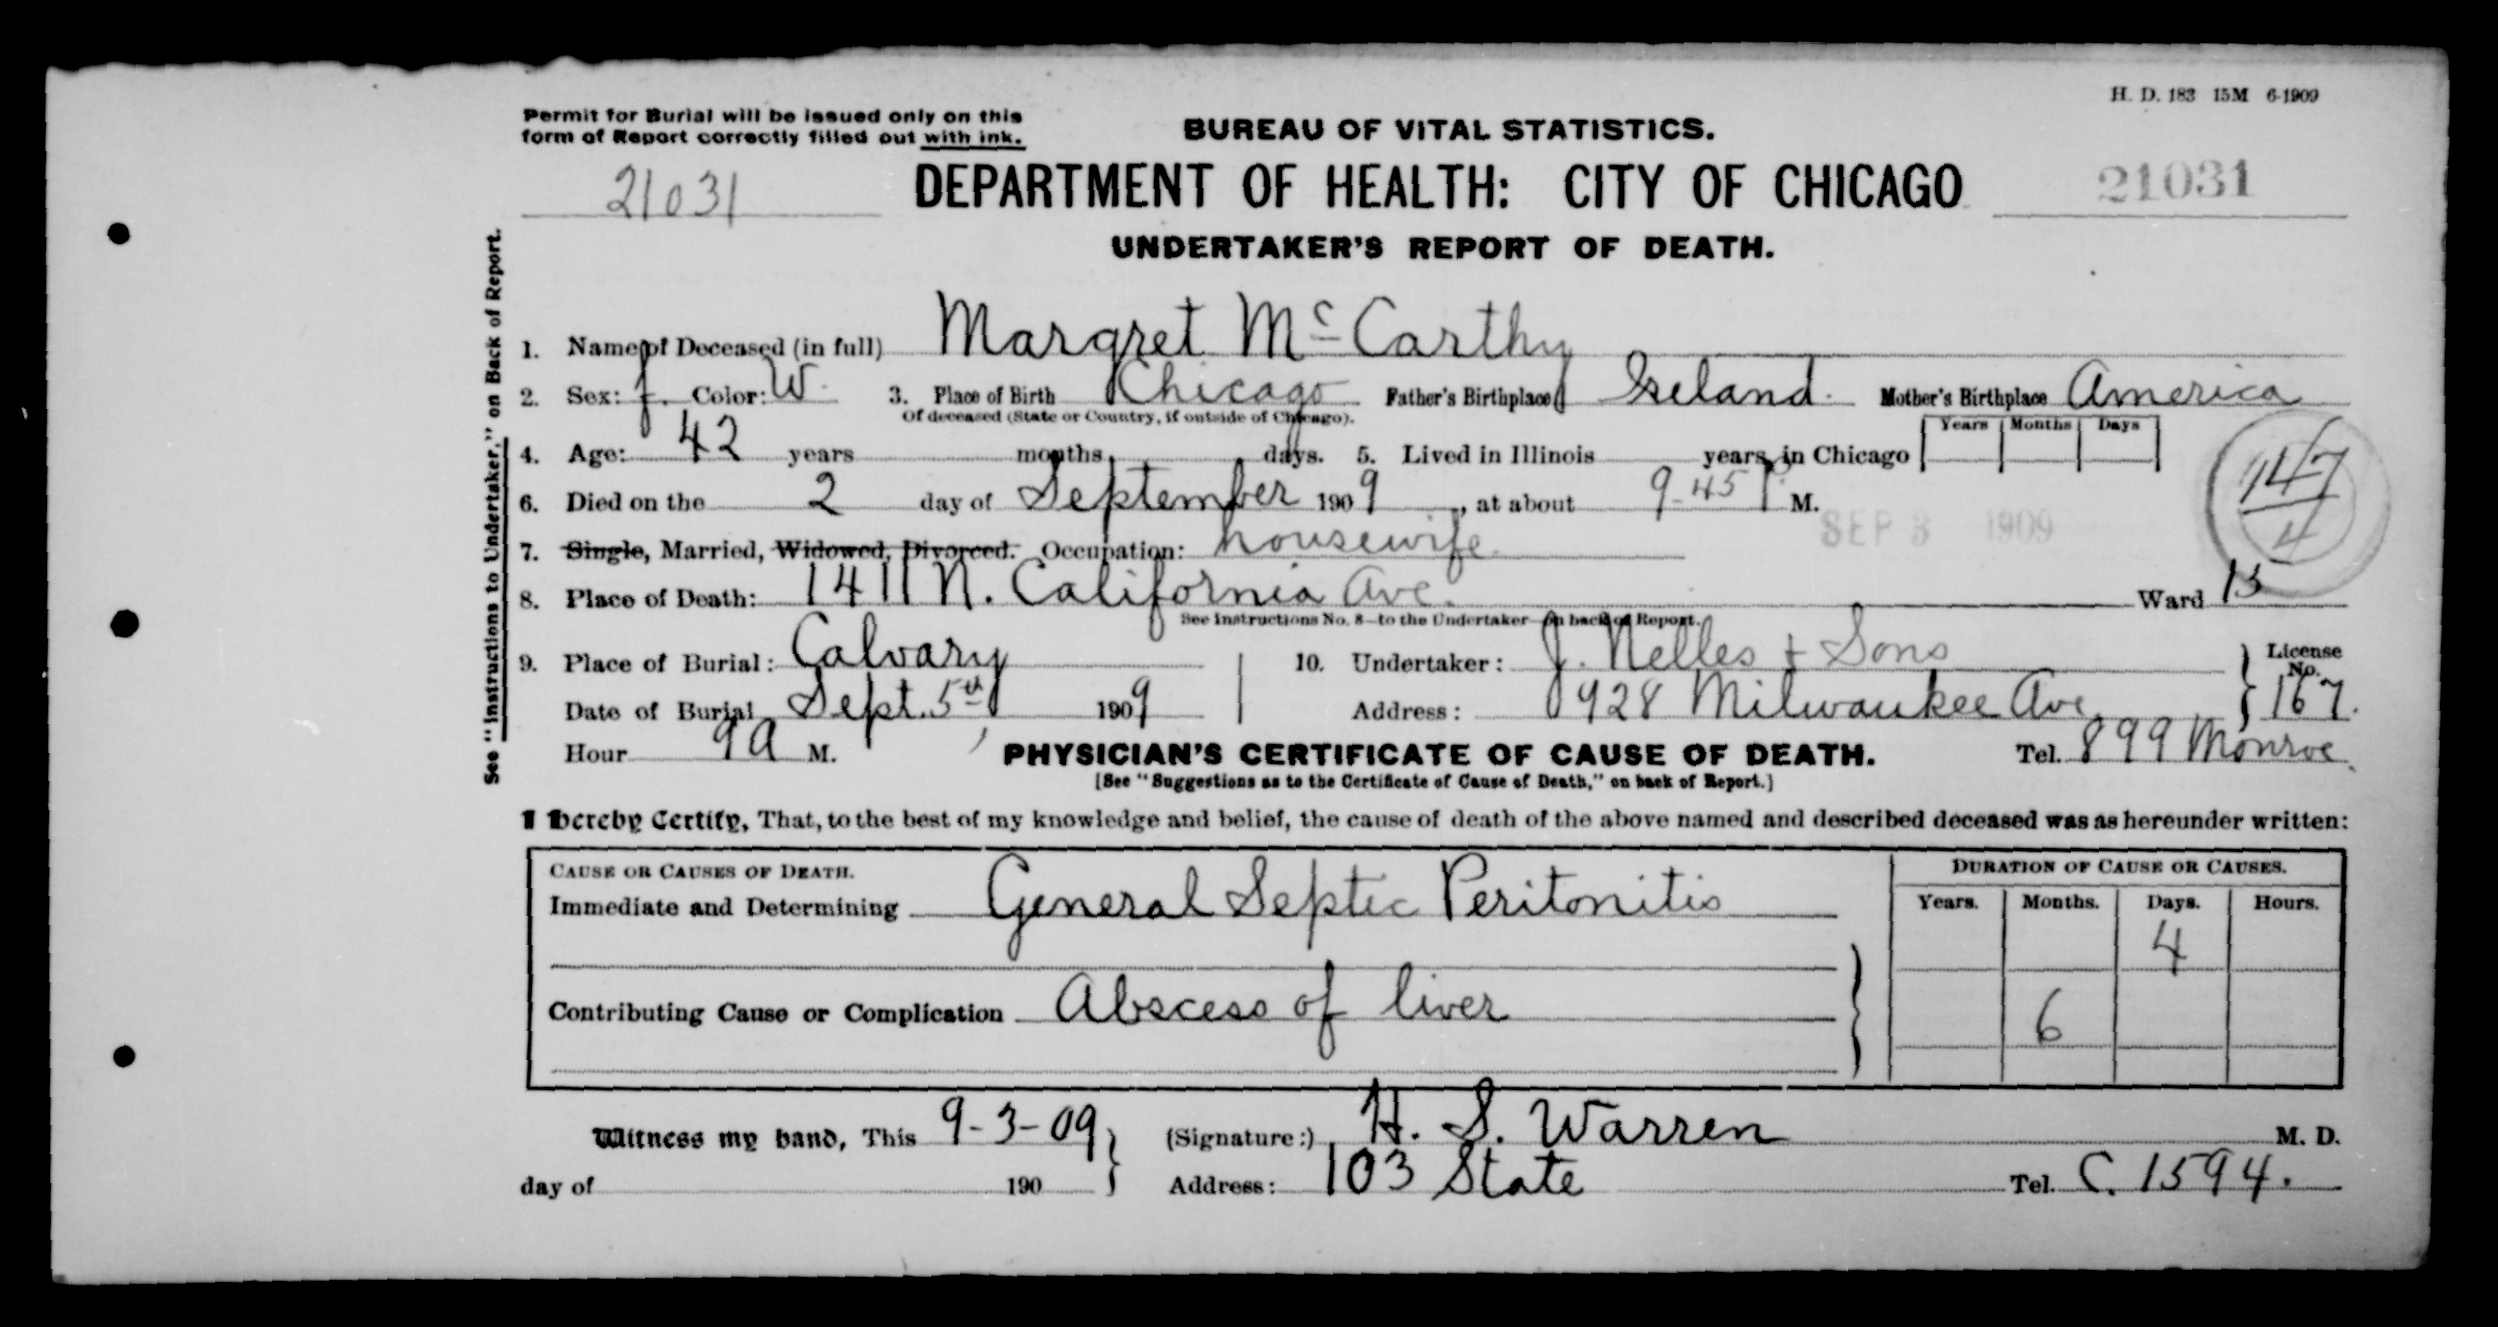 H. D. 183 15M 6-1909
Permit for Burial will be issued only on this
form of Report correctly filled out with ink.
BUREAU OF VITAL STATISTICS.
21031 DEPARTMENT OF HEALTH: CITY OF CHICAGO 21031
UNDERTAKER'S REPORT OF DEATH.
See "Instructions to Undertaker," on Back of Report.
1. Name of Deceased (in full) Margret McCarthy
2. Sex: f. Color: W. 3. Place of Birth Chicago Father's Birthplace Ireland. Mother's Birthplace America
Of deceased (State or Country, if outside of Chicago).
4. Age: 42 years months days. 5. Lived in Illinois years, in Chicago Years Months Days
6. Died on the 2 day of September 1909, at about 9-45 P. M.
SEP 3 1909
7. Single, Married, Widowed, Divorced. Occupation: housewife
8. Place of Death: 1411 N. California Ave. Ward 15
See Instructions No. 8—to the Undertaker—on back of Report.
9. Place of Burial: Calvary 10. Undertaker: J. Nelles + Sons License No.
Date of Burial Sept. 5th 1909 Address: 928 Milwaukee Ave 167.
Hour 9 a M. PHYSICIAN'S CERTIFICATE OF CAUSE OF DEATH. Tel. 899 Monroe
[See "Suggestions as to the Certificate of Cause of Death," on back of Report.]
I hereby Certify, That, to the best of my knowledge and belief, the cause of death of the above named and described deceased was as hereunder written:
CAUSE OR CAUSES OF DEATH. DURATION OF CAUSE OR CAUSES.
Immediate and Determining General Septic Peritonitis Years. Months. Days. Hours.
4
Contributing Cause or Complication Abscess of liver 6
Witness my hand, This 9-3-09 (Signature:) H. S. Warren M. D.
day of 190 Address: 103 State Tel. C. 1594.